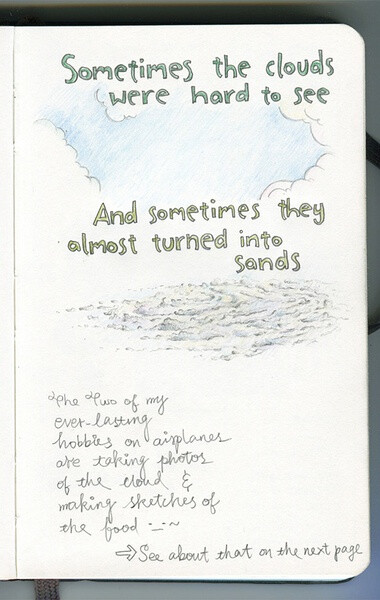 Sometimes the clouds
were hard to see
And sometimes they
almost turned into
sands
The Two of my
ever-lasting
hobbies on airplanes
are taking photos
of the cloud &
making sketches of
the food -_-~
⇨ See about that on the next page